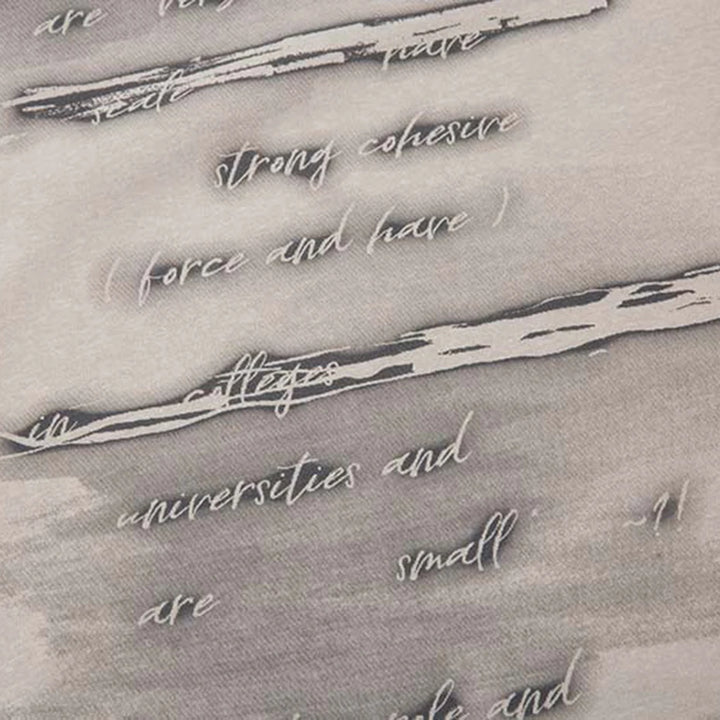 are very
have
scale
strong cohesive
( force and have )
colleges
in
universities and
small ~?!
are
and